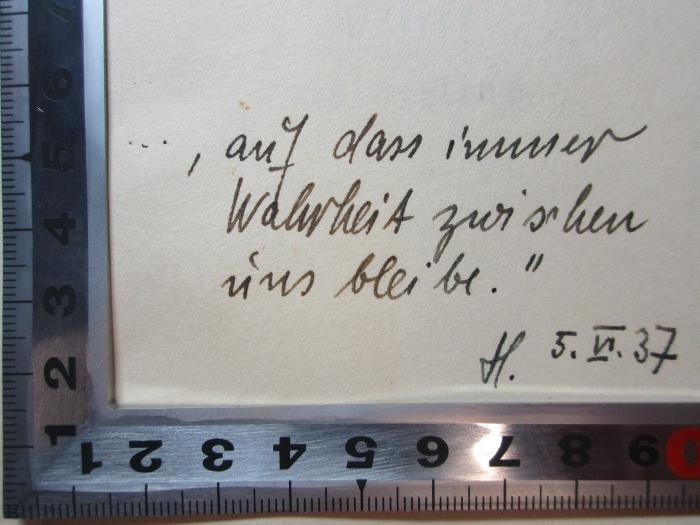 ..., auf dass immer
Wahrheit zwischen
uns bleibe."
H. 5. VI. 37
7 6 5 4 3 2 1
1 2 3 4 5 6 7 8 9 10